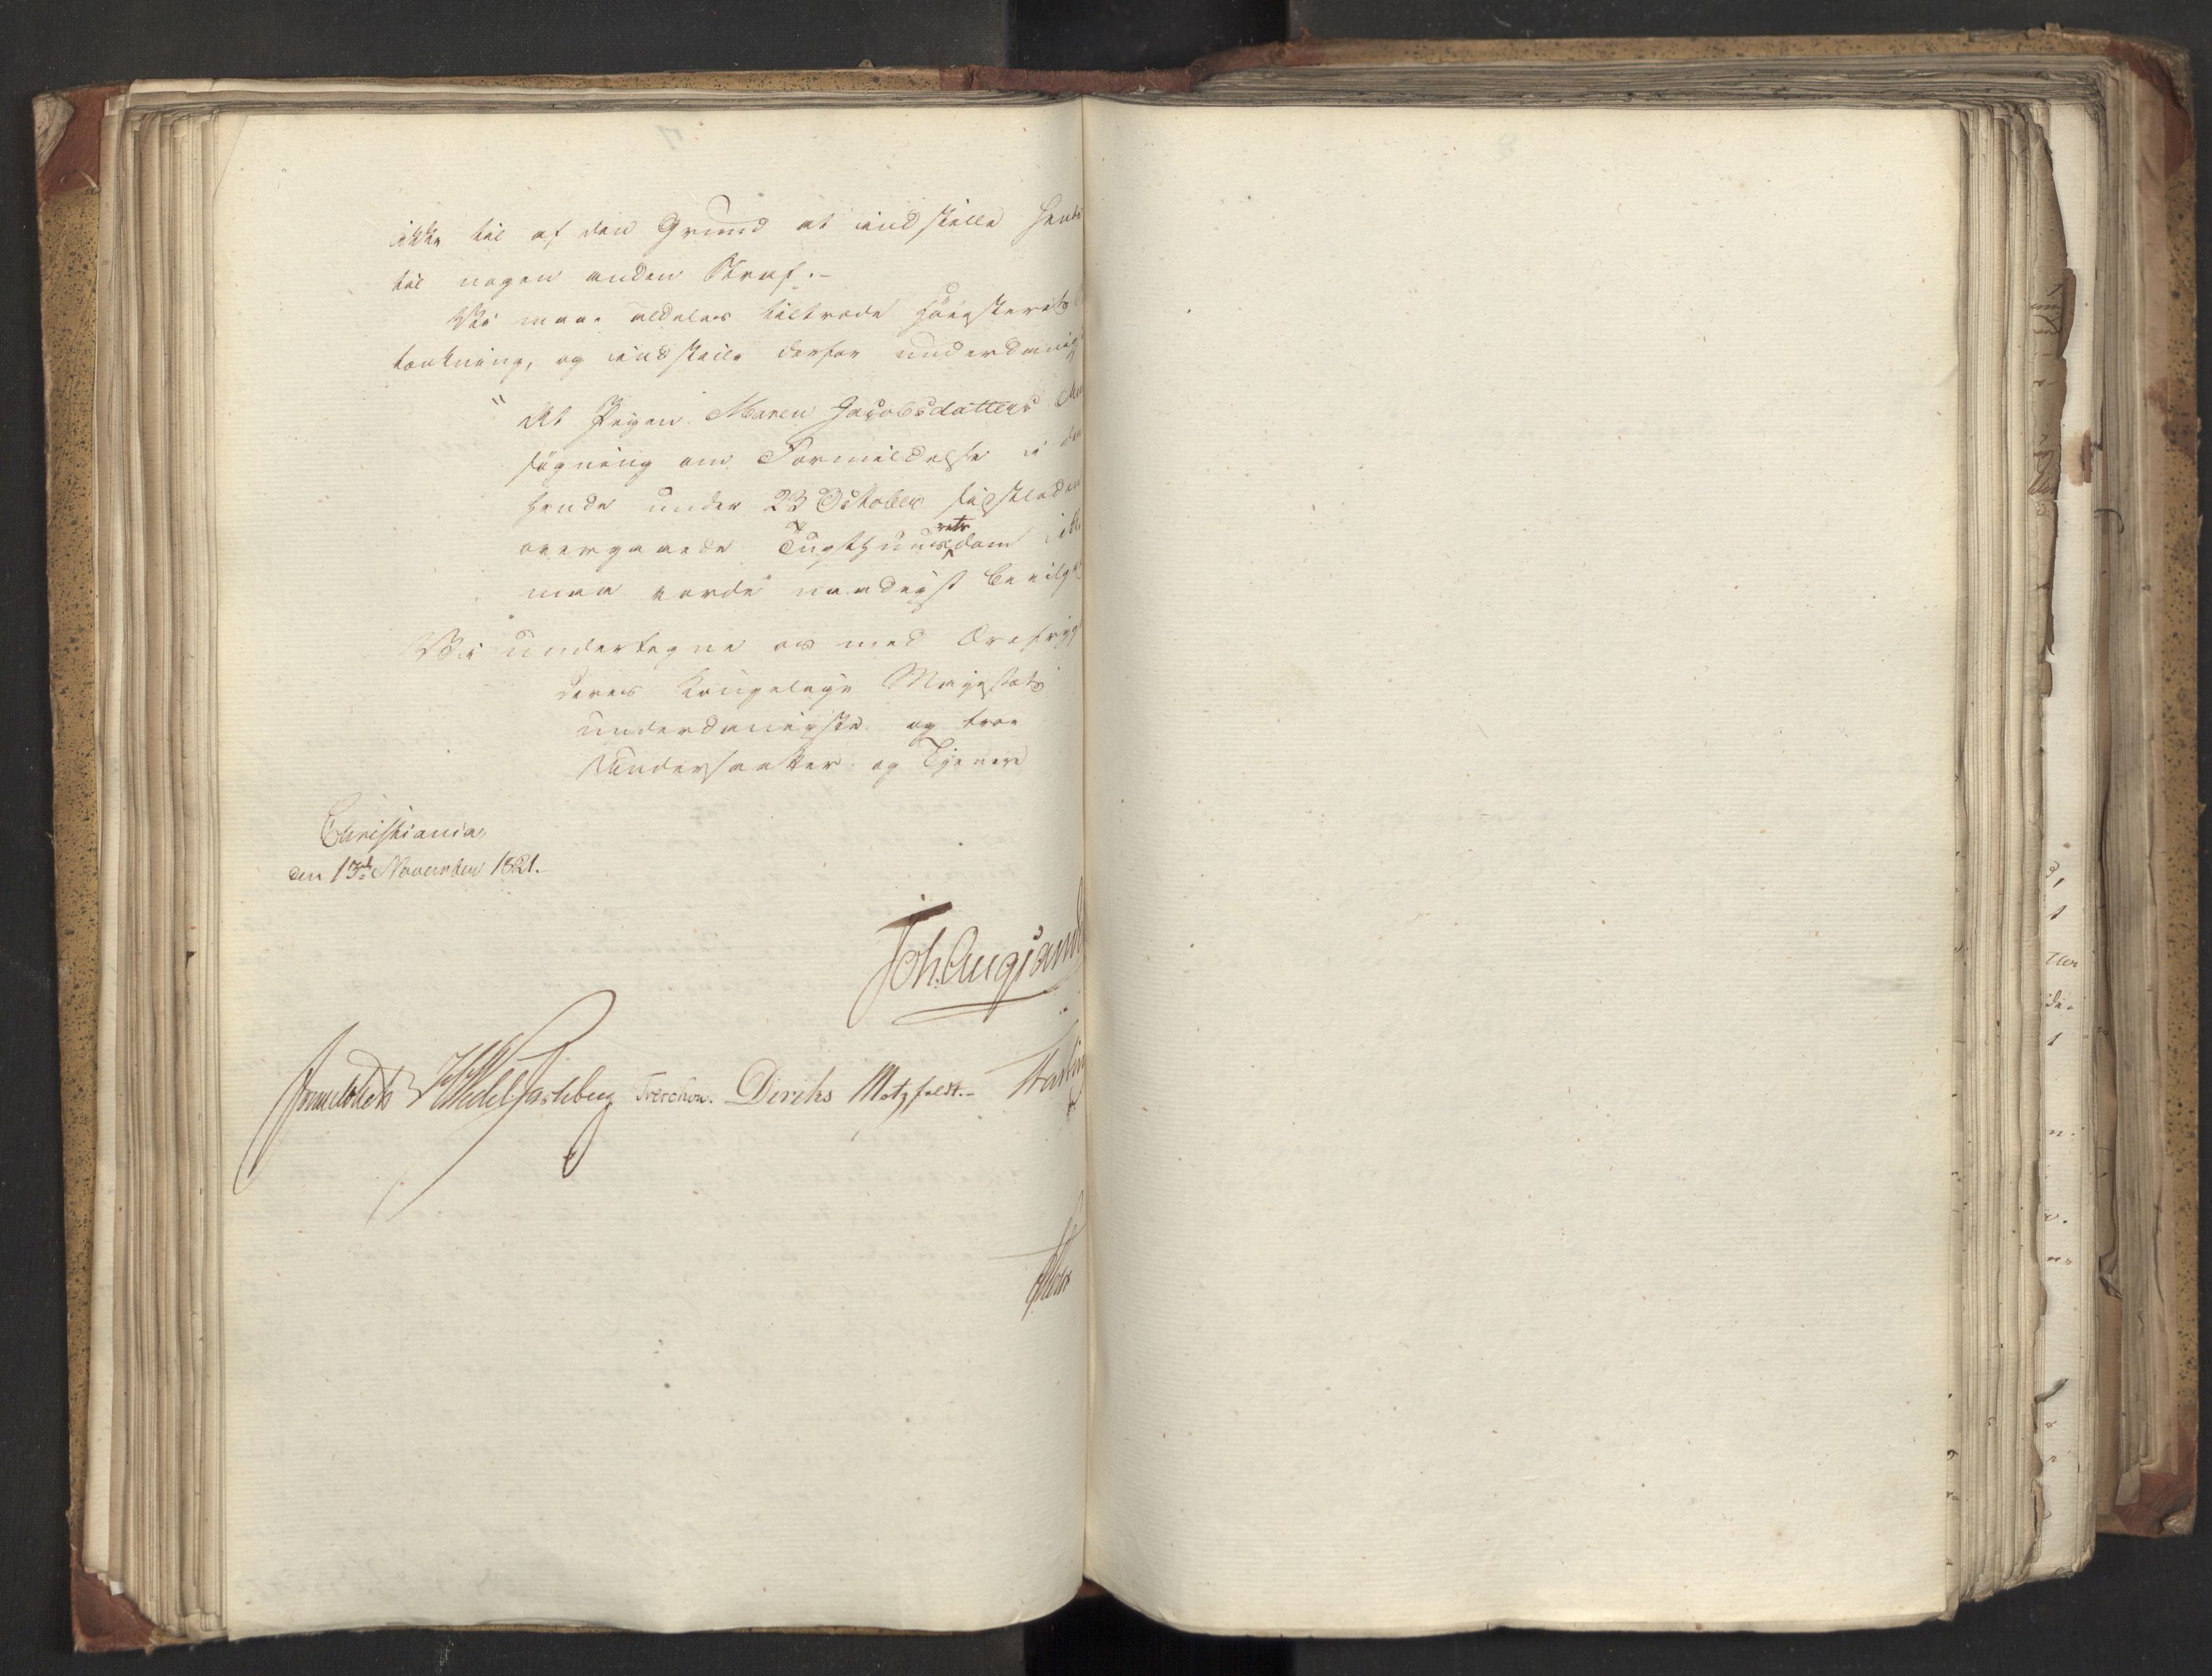 ikke til af den Grund at indstille hende
til nogen anden Straf.-
Vi maae aldeles tiltræde Høiesterets
tænkning, og indstille derfor underdanigst
"At Pigen Maren Jacobsdatters An
søgning om Formildelse i den
hende under 23 October sidstleden
overgaaede Tugthuusretsdom ikke
maa vorde naadigst bevilget
Vi undertegne os med Ærefrygt
Deres Kongelige Majestæts
underdanigste og troe
Undersaatter og Tjenere
Christiania,
den 13de November 1821.
Joh. Aug. Sand
Sommerhielm Wedel Jarlsberg Treschow. Diriks Motzfeldt.- Fasting